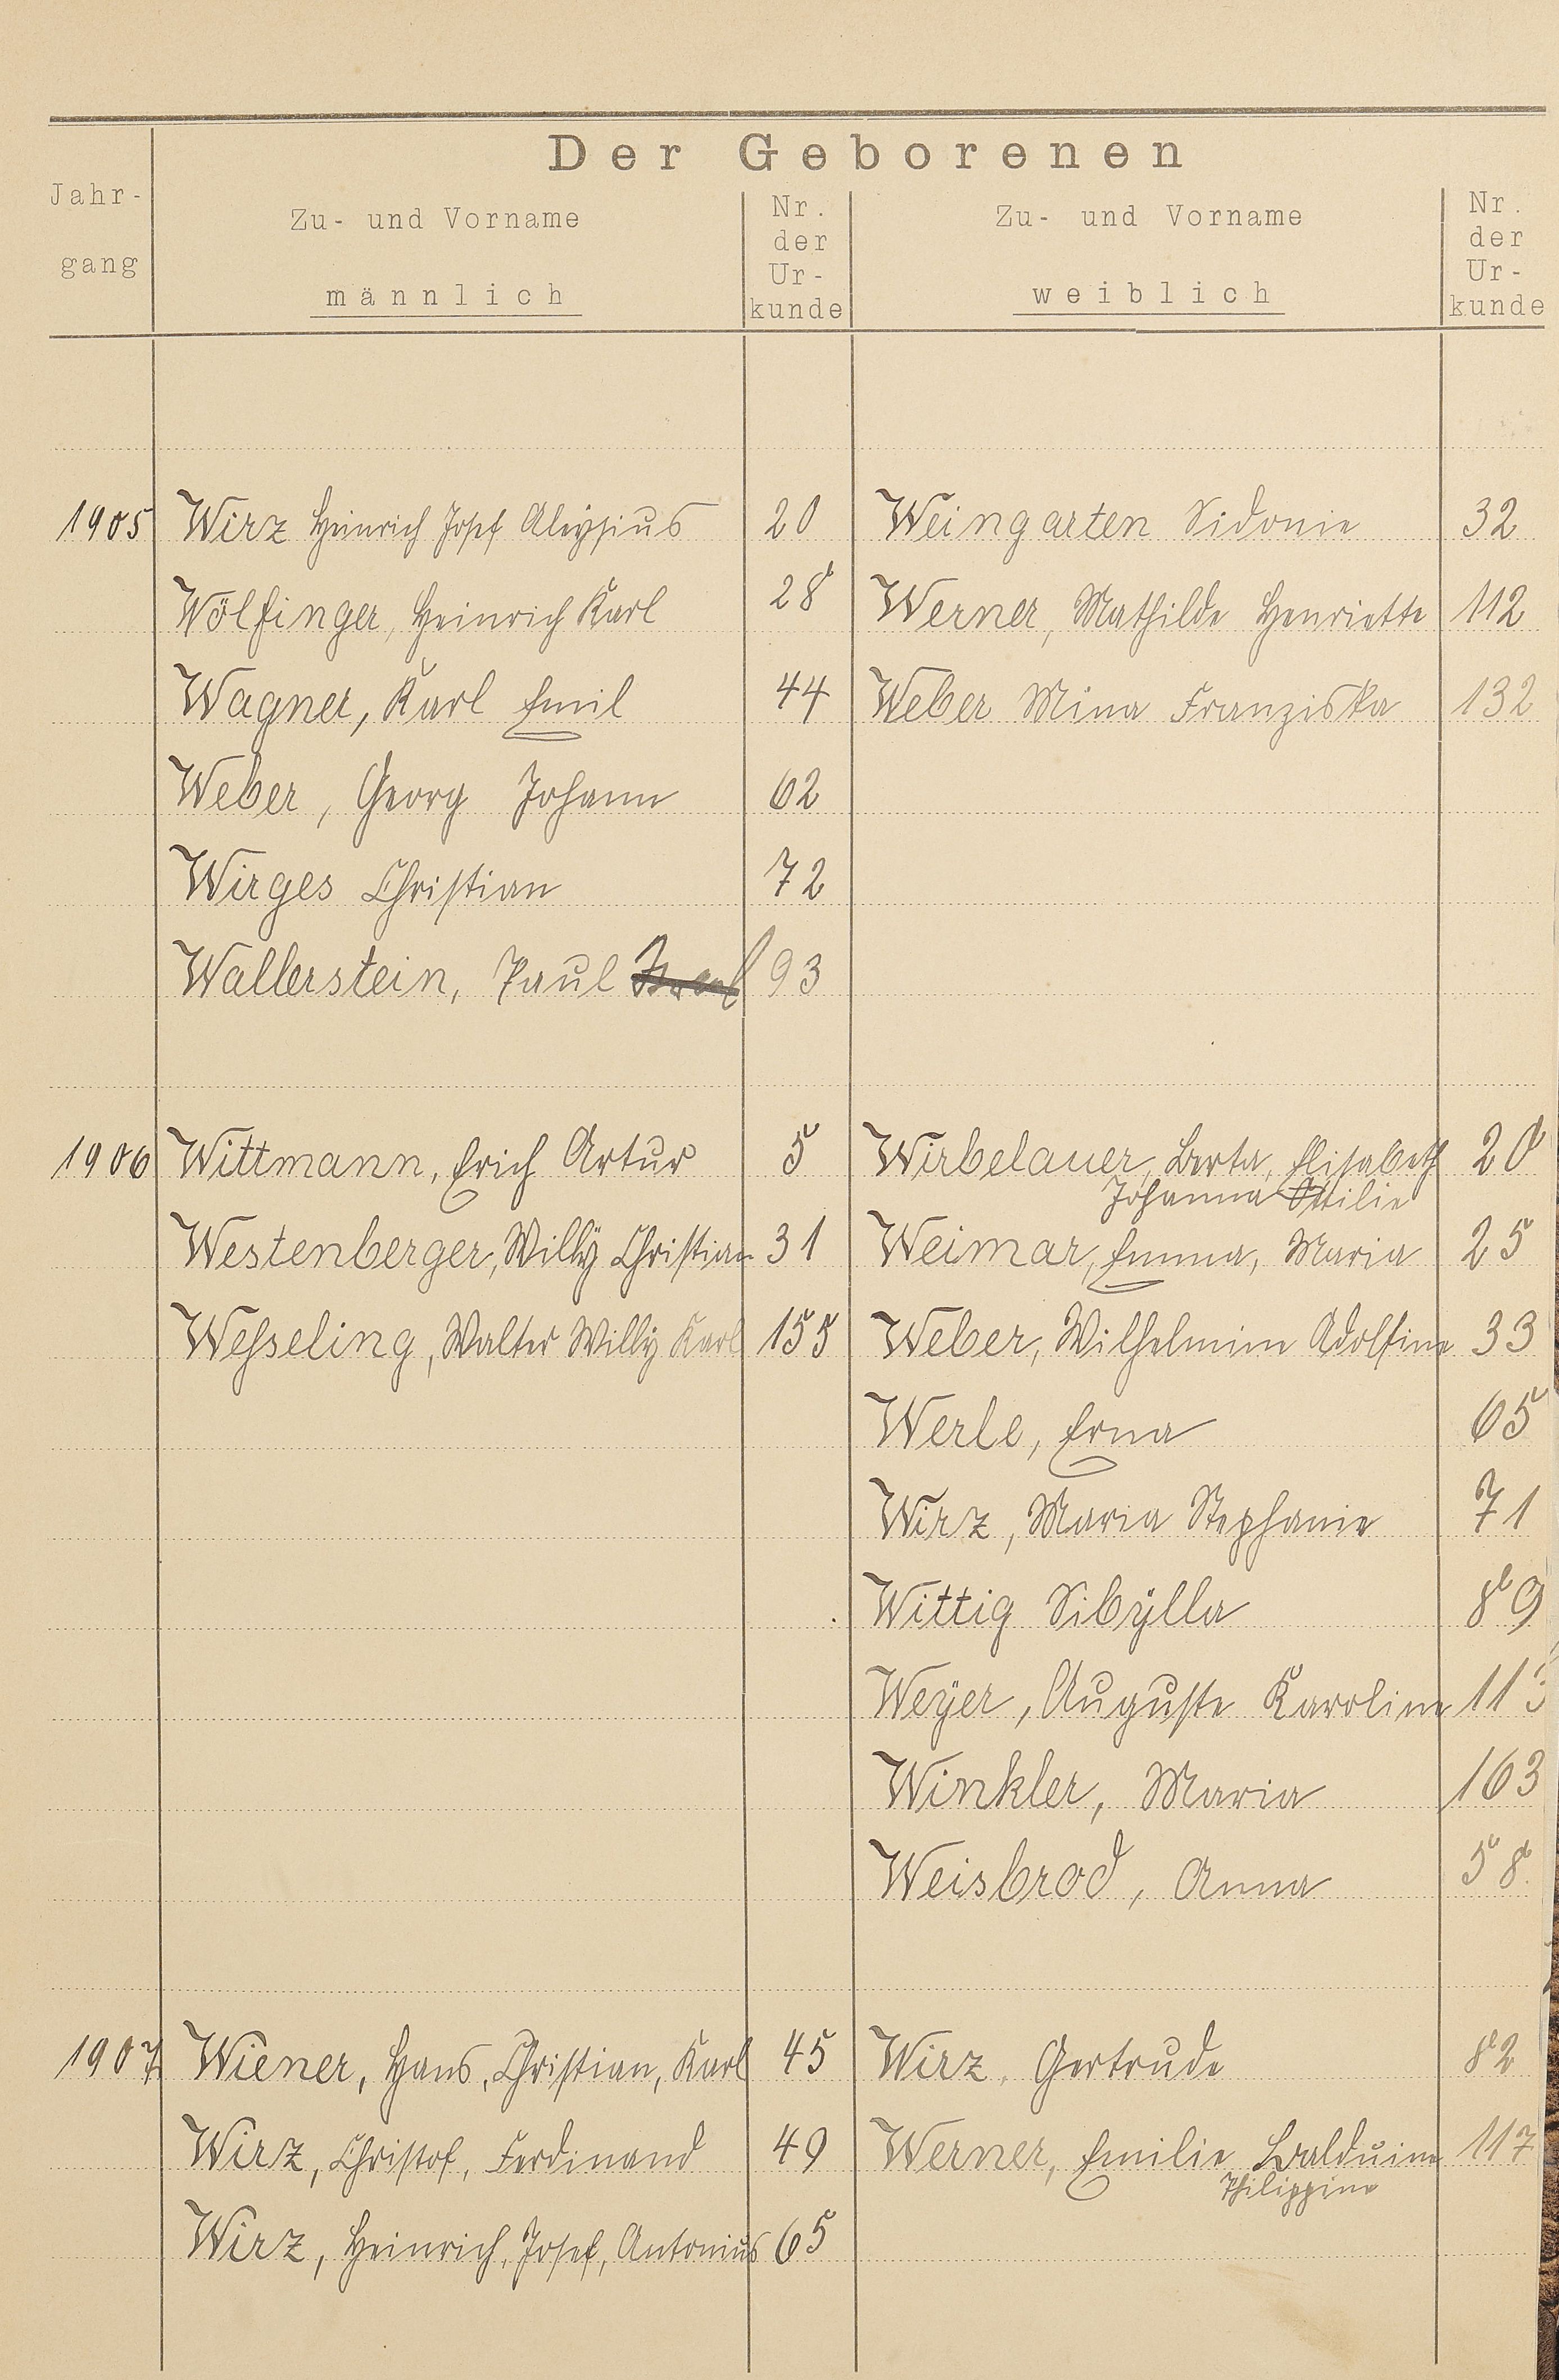 Der Geborenen
Jahr-
gang
Zu- und Vorname
männlich
Nr.
der
Ur-
kunde
Zu- und Vorname
weiblich
Nr.
der
Ur-
kunde
1905 Wirz Heinrich Josef Aloysius 20 Weingarten Sidonie 32
Wölfinger, Heinrich Karl 28 Werner, Mathilde Henriette 112
Wagner, Karl Emil 44 Weber Mina Franziska 132
Weber, Georg Johann 62
Wirges Christian 72
Wallerstein, Paul Israel 93
1906 Wittmann, Erich Artur 5 Wirbelauer, Berta, Elisabeth 20
Johanna Ottilie
Westenberger, Willy Christian 31 Weimar, Emma, Maria 25
Weßeling, Walter Willy Karl 155 Weber, Wilhelmine Adolfine 33
Werle, Erna 65
Wirz, Maria Stephanie 71
Wittig Sibÿlla 89
Weÿer, Auguste Karoline 113
Winkler, Maria 163
Weisbrod, Anna 58
1907 Wiener, Hans, Christian, Karl 45 Wirz, Gertrude 82
Wirz, Christof, Ferdinand 49 Werner, Emilie Balduine 117
Philippine
Wirz, Heinrich, Josef, Antonius 65